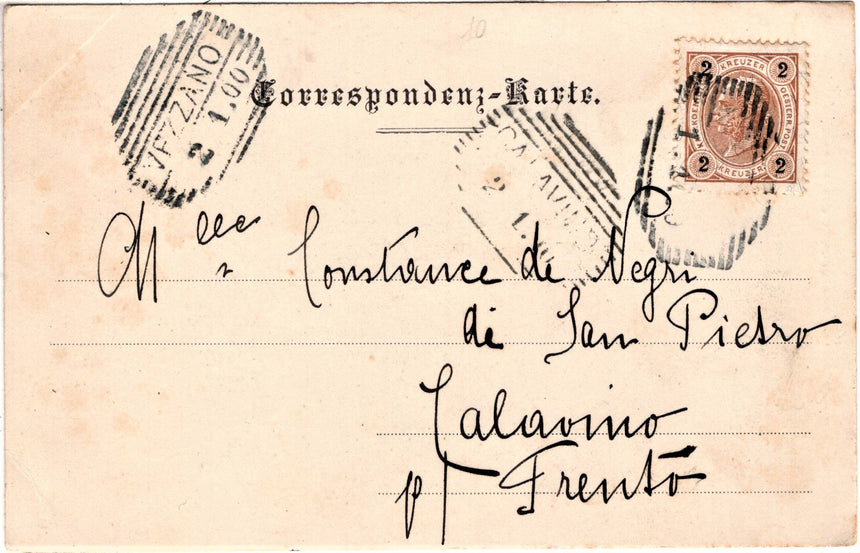 10
VEZZANO
2 1.00
Correspondenz-Karte.
2 KREUZER 2
OESTERR. POST
2 KREUZER 2
CALAVINO
2 1.00
Mlle Constance de Negri
di San Pietro
Calavino
p/ Trento